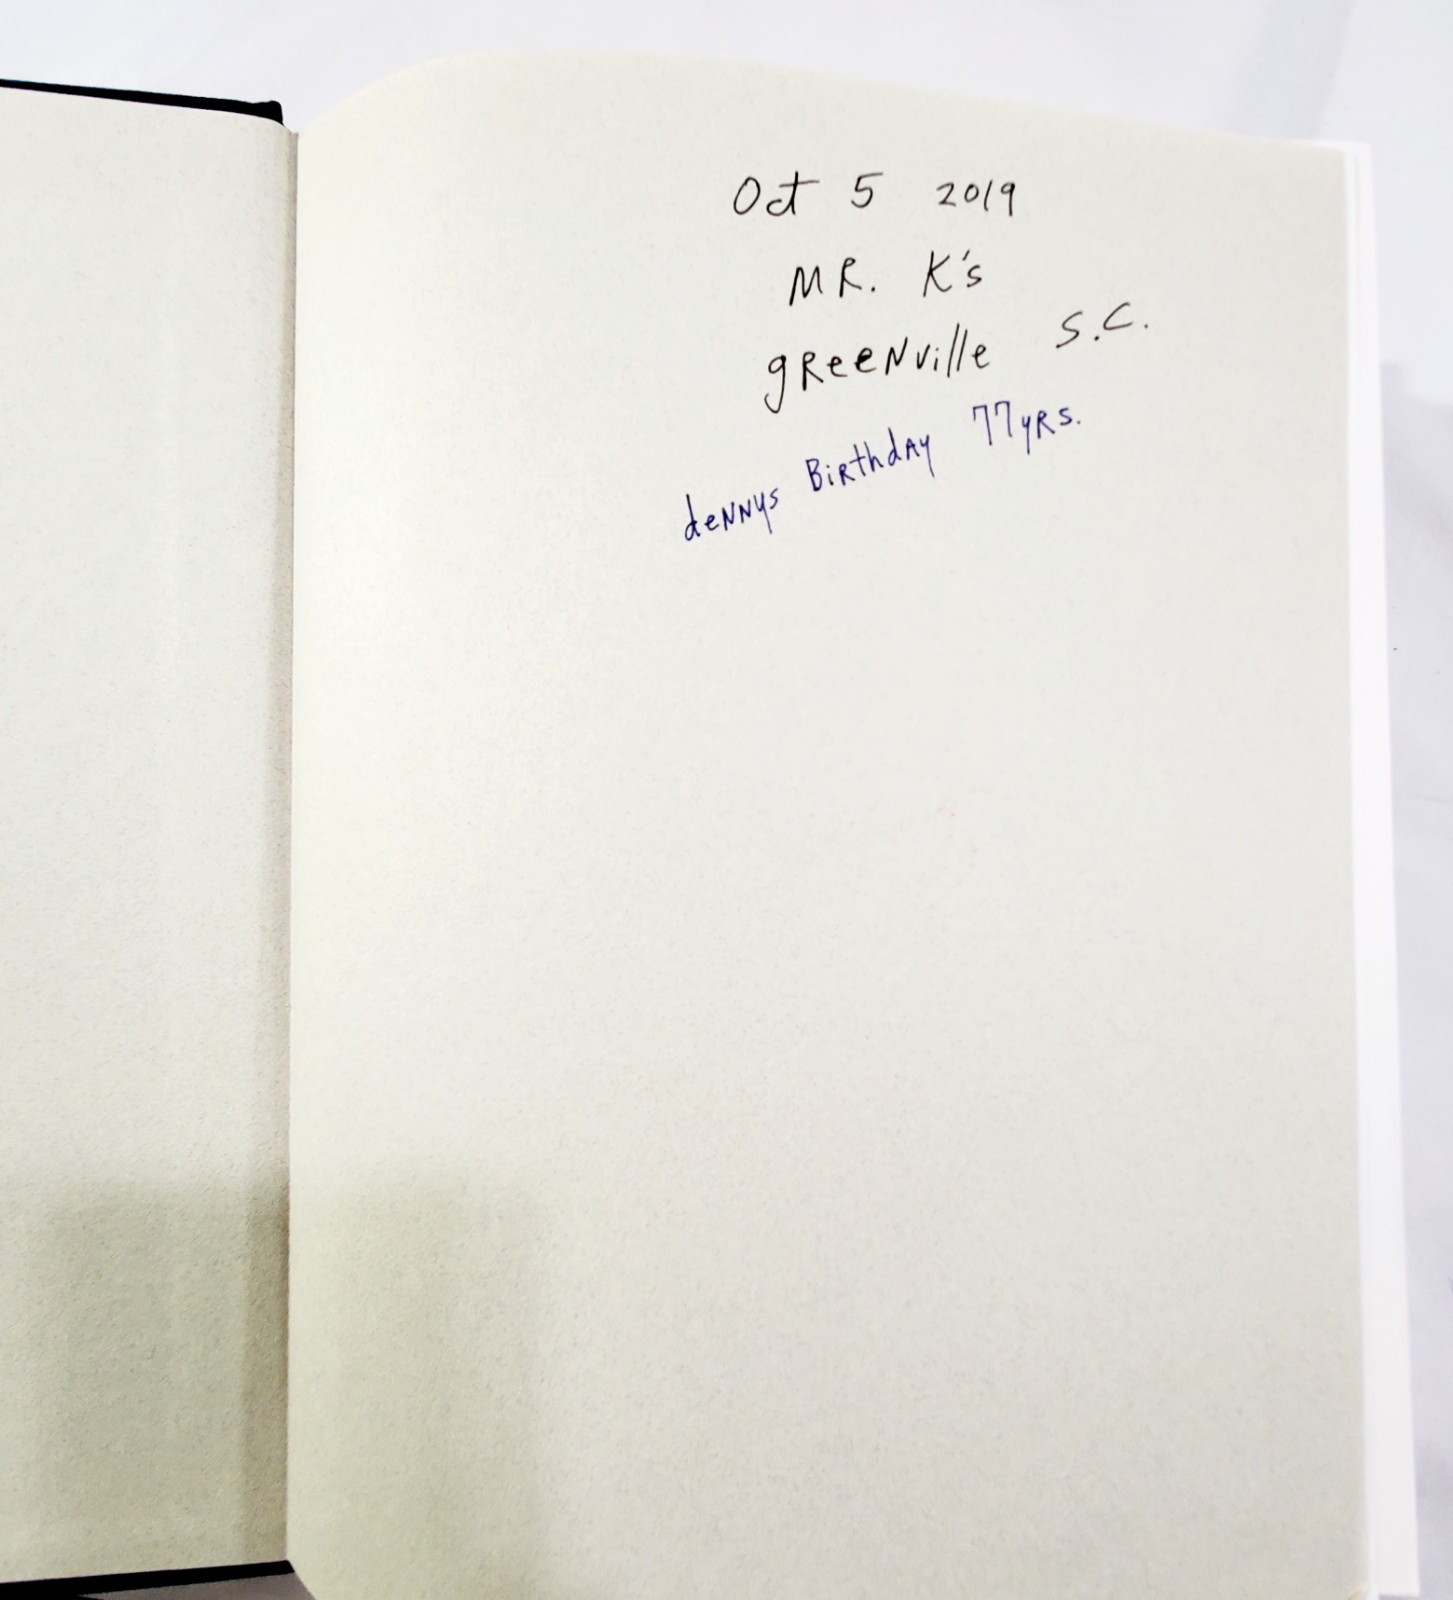 Oct 5 2019
MR. K's
gReeNville S.C.
deNNys BiRthdAy 77yRs.